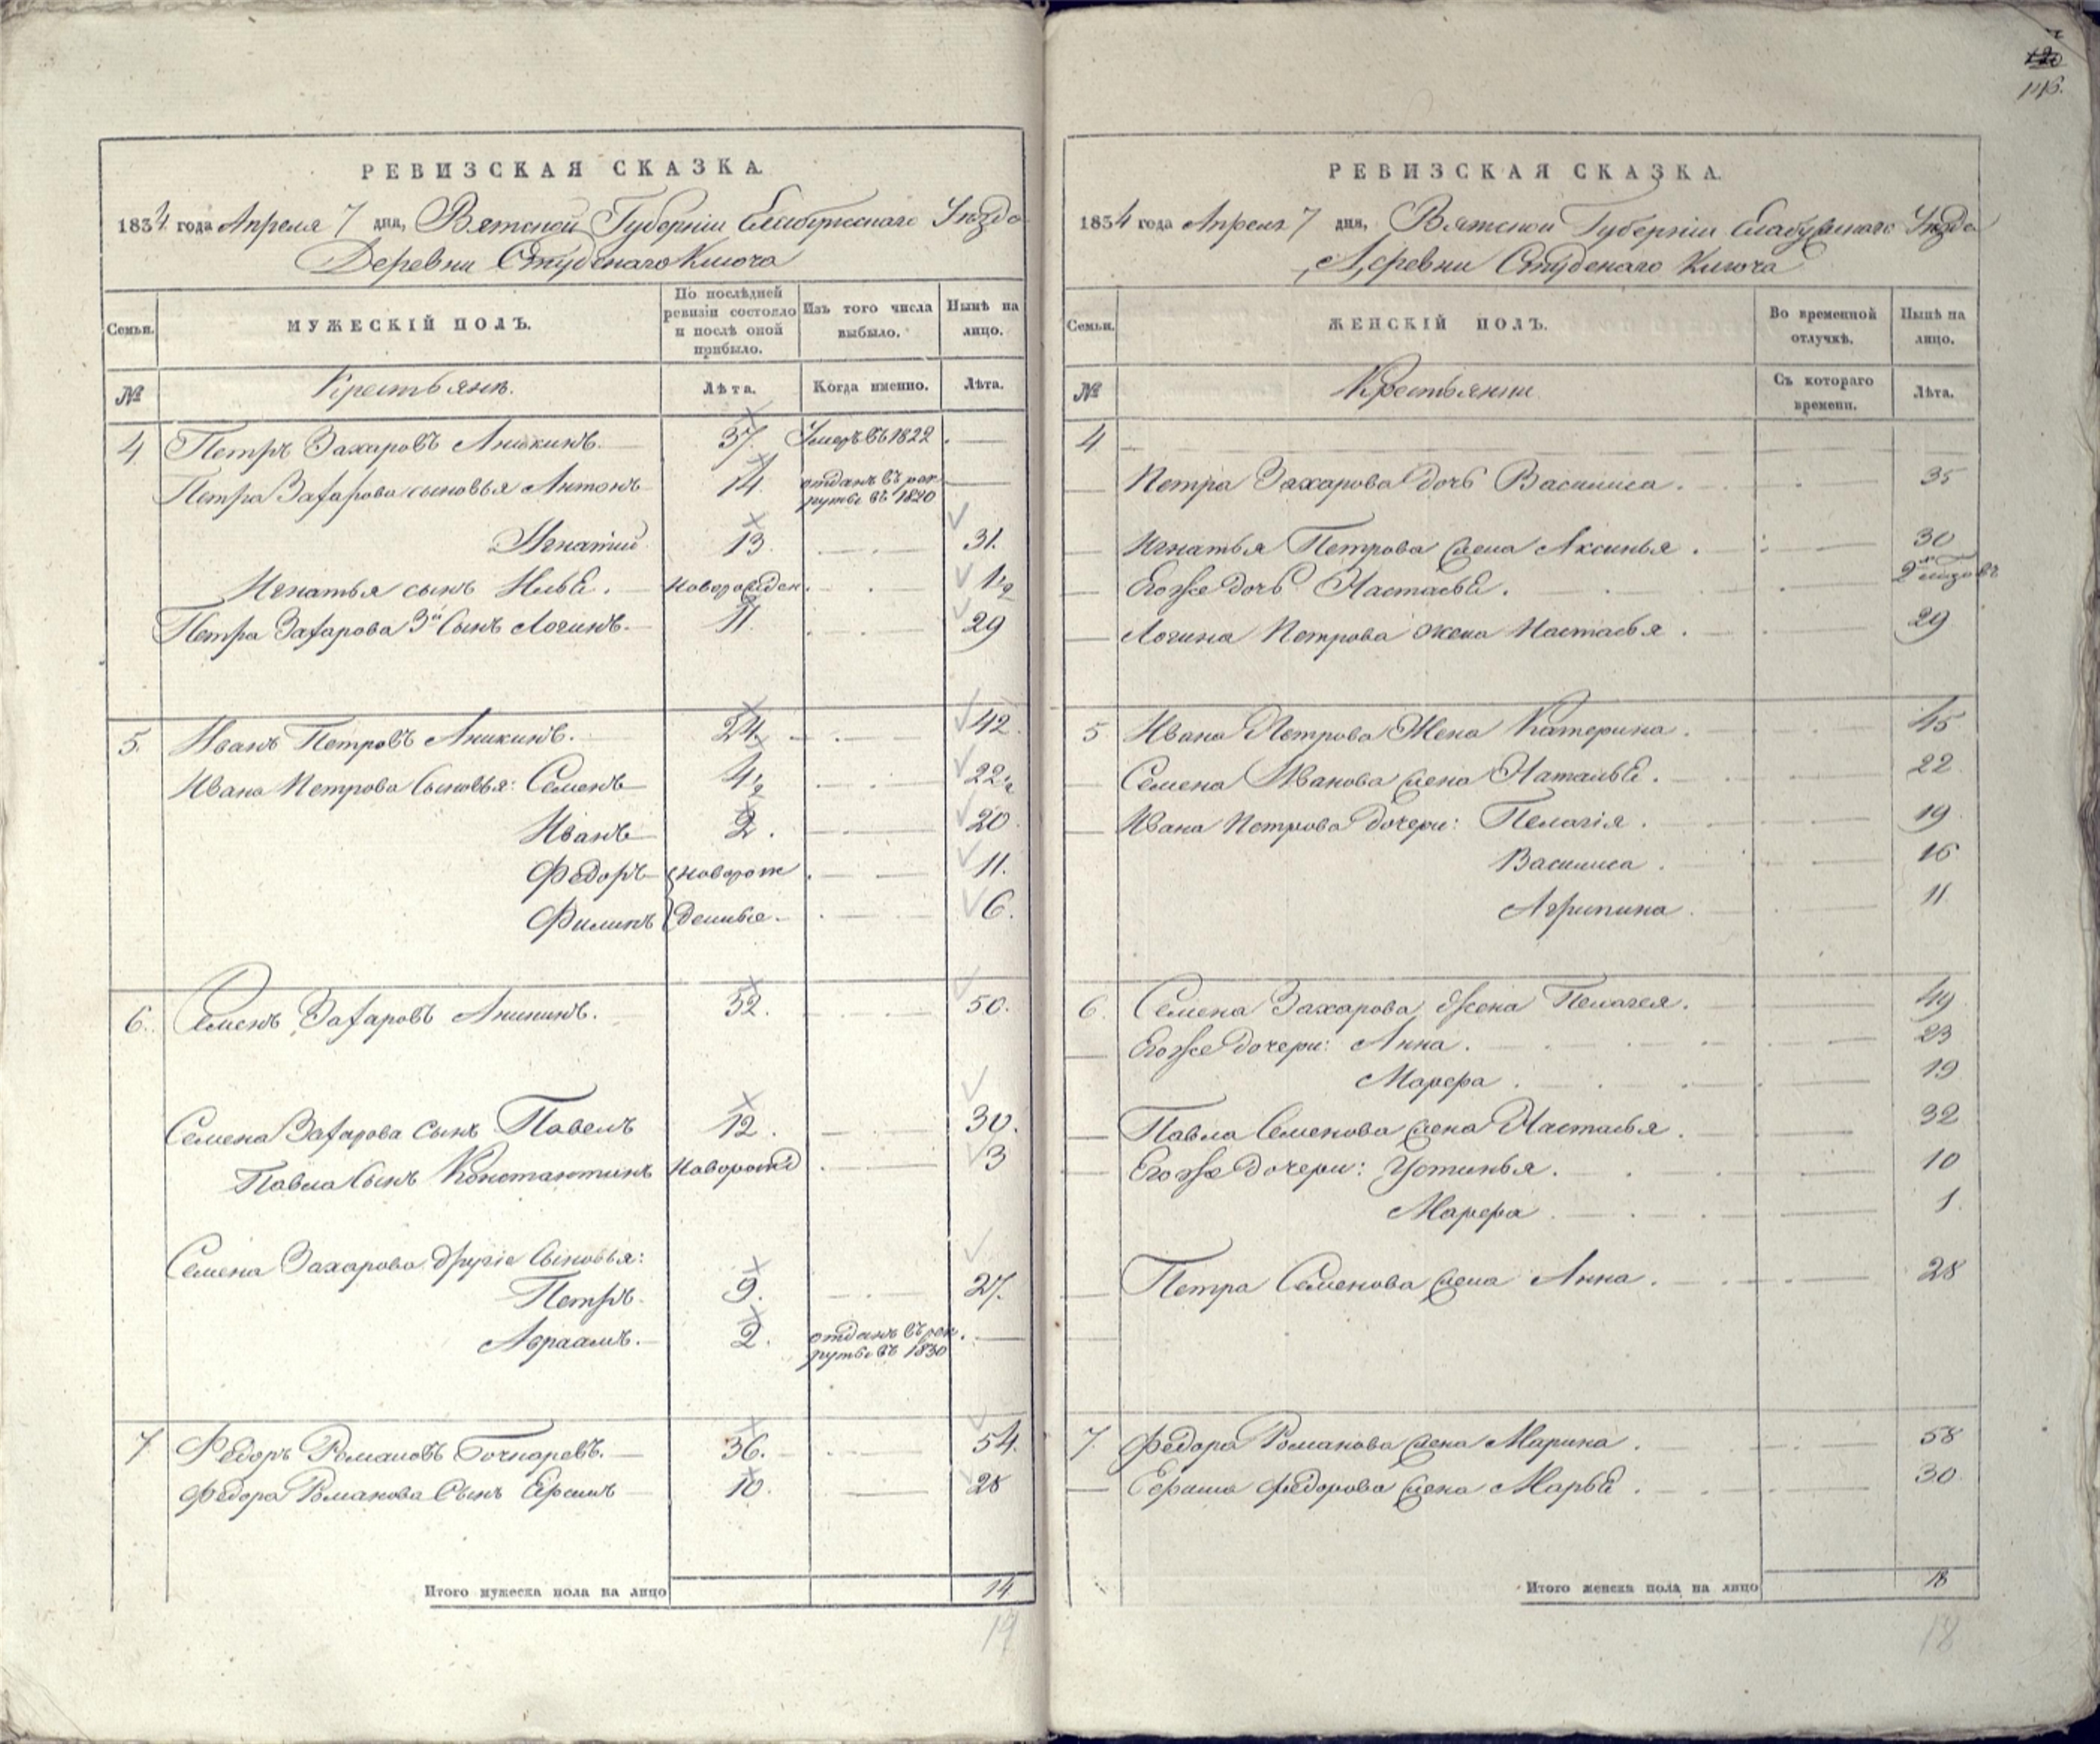 120
146.
РЕВИЗСКАЯ СКАЗКА.
1834 года Апреля 7 дня, Вятской Губерніи Елабужскаго Уѣзда
Деревни Студенаго Ключа
Семьи.
МУЖЕСКІЙ ПОЛЪ.
По послѣдней ревизіи состояло и послѣ оной прибыло.
Изъ того числа выбыло.
Нынѣ на лицо.
№
Крестьянѣ.
Лѣта.
Когда именно.
Лѣта.
4. Петръ Захаровъ Аникинъ. 37. Умеръ въ 1822
Петра Захарова сыновья Антонъ 14. отданъ въ рек
руты въ 1820
Игнатій 13. 31.
Игнатья сынъ Илья. новорожден. 1½
Петра Захарова 3й Сынъ Логинъ. 11. 29
5. Иванъ Петровъ Аникинъ. 24. 42.
Ивана Петрова Сыновья: Семенъ 4½ 22½
Иванъ 2. 20.
Федоръ новорож 11.
Филипъ денные. 6.
6. Семенъ Захаровъ Аникинъ. 32. 50.
Семена Захарова сынъ Павелъ 12. 30.
Павла Сынъ Константинъ Новорожд 3
Семена Захарова другіе Сыновья:
Петръ. 9. 27.
Авраамъ. 2. отданъ въ рек
руты въ 1830
7. Федоръ Романовъ Гончаревъ. 36. 54.
Федора Романова Сынъ Ефимъ 10. 28
Итого мужеска пола на лицо 14
14
РЕВИЗСКАЯ СКАЗКА.
1834 года Апреля 7 дня, Вятской Губерніи Елабужскаго Уѣзда
Деревни Студенаго Ключа
Семьи.
ЖЕНСКІЙ ПОЛЪ.
Во временной отлучкѣ.
Нынѣ на лицо.
№
Крестьянки
Съ котораго времени.
Лѣта.
4
Петра Захарова дочь Василиса. 35
Игнатья Петрова жена Аксинья. 30
Его же дочь Настасья. 2
Логина Петрова жена Настасья. 29
5 Ивана Петрова Жена Катерина. 45
Семена Иванова жена Наталья. 22
Ивана Петрова дочери: Пелагія. 19
Василиса. 16
Агрипина. 11
6. Семена Захарова Жена Пелагея. 49
Его же дочери: Анна. 23
Марфа. 19
Павла Семенова жена Настасья. 32
Его же дочери: Устинья. 10
Марфа. 1.
Петра Семенова жена Анна. 28
7. Федора Романова жена Марина. 58
Ефима Федорова жена Марья. 30.
Итого женска пола на лицо 18
18